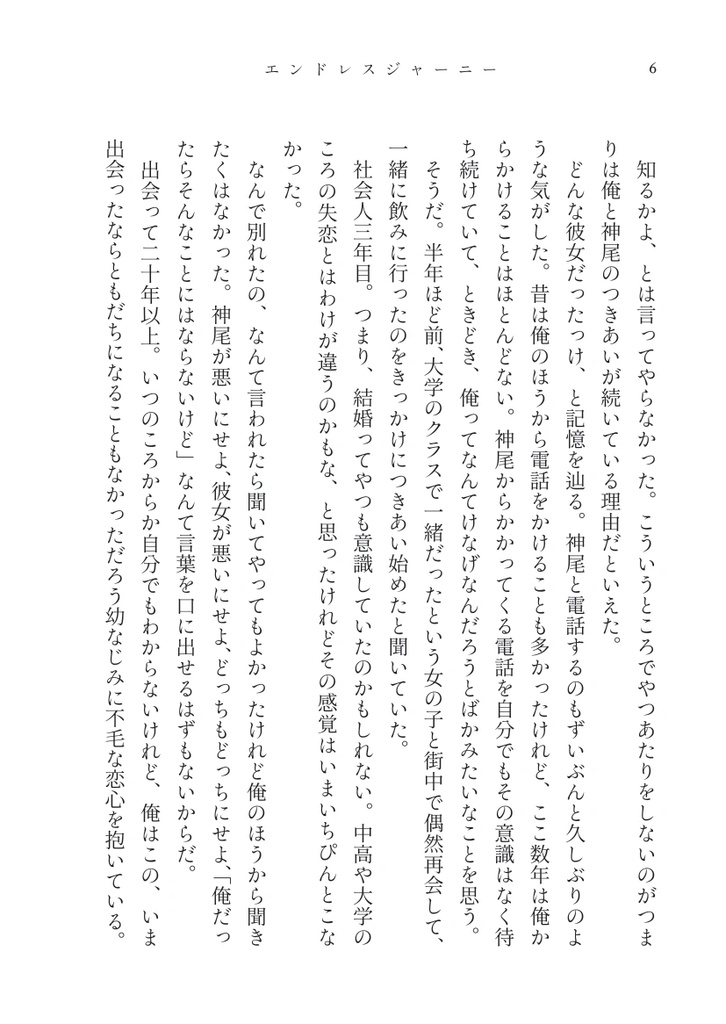 エンドレスジャーニー
6
知るかよ、とは言ってやらなかった。こういうところでやつあたりをしないのがつま
りは俺と神尾のつきあいが続いている理由だといえた。
どんな彼女だったっけ、と記憶を辿る。神尾と電話するのもずいぶんと久しぶりのよ
うな気がした。昔は俺のほうから電話をかけることも多かったけれど、ここ数年は俺か
らかけることはほとんどない。神尾からかかってくる電話を自分でもその意識はなく待
ち続けていて、ときどき、俺ってなんてけなげなんだろうとばかみたいなことを思う。
そうだ。半年ほど前、大学のクラスで一緒だったという女の子と街中で偶然再会して、
一緒に飲みに行ったのをきっかけにつきあい始めたと聞いていた。
社会人三年目。つまり、結婚ってやつも意識していたのかもしれない。中高や大学の
ころの失恋とはわけが違うのかもな、と思ったけれどその感覚はいまいちぴんとこな
かった。
なんで別れたの、なんて言われたら聞いてやってもよかったけれど俺のほうから聞き
たくはなかった。神尾が悪いにせよ、彼女が悪いにせよ、どっちもどっちにせよ、「俺だっ
たらそんなことにはならないけど」なんて言葉を口に出せるはずもないからだ。
出会って二十年以上。いつのころからか自分でもわからないけれど、俺はこの、いま
出会ったならともだちになることもなかっただろう幼なじみに不毛な恋心を抱いている。